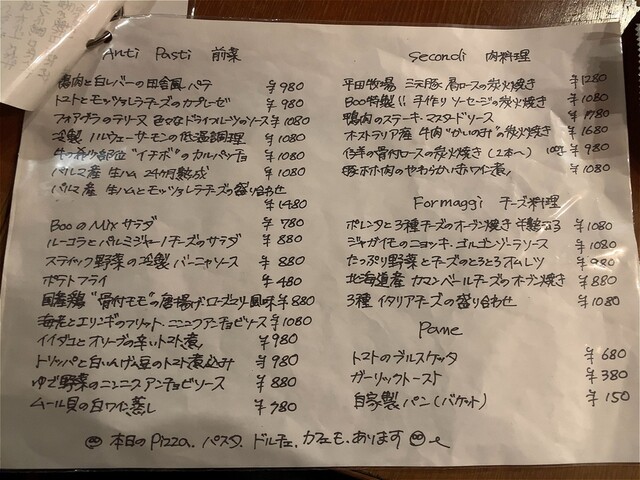 Anti Pasti 前菜
鶏肉と白レバーの田舎風パテ ¥980
トマトとモッツァレラチーズのカプレーゼ ¥980
フォアグラのテリーヌ 色々なドライフルーツのソース ¥1080
冷製 ノルウェーサーモンの低温調理 ¥1080
牛の希少部位"イチボ"のカルパッチョ ¥1080
パルマ産 生ハム 24ヶ月熟成 ¥1080
パルマ産 生ハムとモッツァレラチーズの盛り合わせ
¥1480
BooのMixサラダ ¥780
ルーコラとパルミジャーノチーズのサラダ ¥880
スティック野菜の冷製 バーニャソース ¥880
ポテトフライ ¥480
国産鶏"骨付モモ"の唐揚げ ローズマリー風味 ¥880
海老とエリンギのフリット ニンニクアンチョビソース ¥1080
イイダコとオリーブの辛いトマト煮 ¥980
トリッパと白いんげん豆のトマト煮込み ¥980
ゆで野菜のニンニクアンチョビソース ¥880
ムール貝の白ワイン蒸し ¥980
Secondi 肉料理
平田牧場 三元豚 肩ロースの炭火焼き ¥1280
Boo特製!! 手作りソーセージの炭火焼き ¥1080
鴨肉のステーキ マスタードソース ¥1780
オーストラリア産 牛肉"かいのみ"の炭火焼き ¥1680
仔羊の骨付ロースの炭火焼き(2本〜) ¥980
豚ホホ肉のやわらか赤ワイン煮 ¥1080
Formaggi チーズ料理
ポレンタと3種チーズのオーブン焼き ¥1080
ジャガイモのニョッキ ゴルゴンゾーラソース ¥1080
たっぷり野菜とチーズのとろとろオムレツ ¥980
北海道産 カマンベールチーズのオーブン焼き ¥880
3種 イタリアチーズの盛り合わせ ¥1080
Pane
トマトのブルスケッタ ¥680
ガーリックトースト ¥380
自家製パン(バケット) ¥150
本日のPizza、パスタ、ドルチェ、カフェも、あります